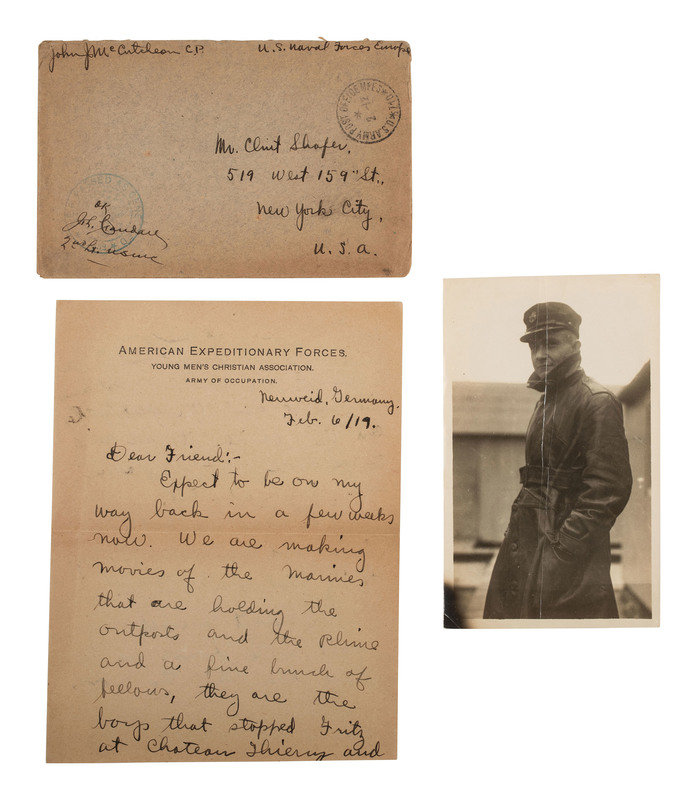 John J McCutcheon C.P. U.S. Naval Forces Europe
U.S. ARMY POST OFFICE M.P.E.S. 740
Mr. Clint Shafer,
519 West 159" St.,
New York City,
U. S. A.
PASSED AS
OK
2nd Lt. USMC
AMERICAN EXPEDITIONARY FORCES.
YOUNG MEN'S CHRISTIAN ASSOCIATION.
ARMY OF OCCUPATION.
Neuweid, Germany,
Feb. 6/19.
Dear Friend:-
Expect to be on my
way back in a few weeks
now. We are making
movies of the Marines
that are holding the
outposts and the Rhine
and a fine bunch of
fellows, they are the
boys that stopped Fritz
at Chateau Thierry and